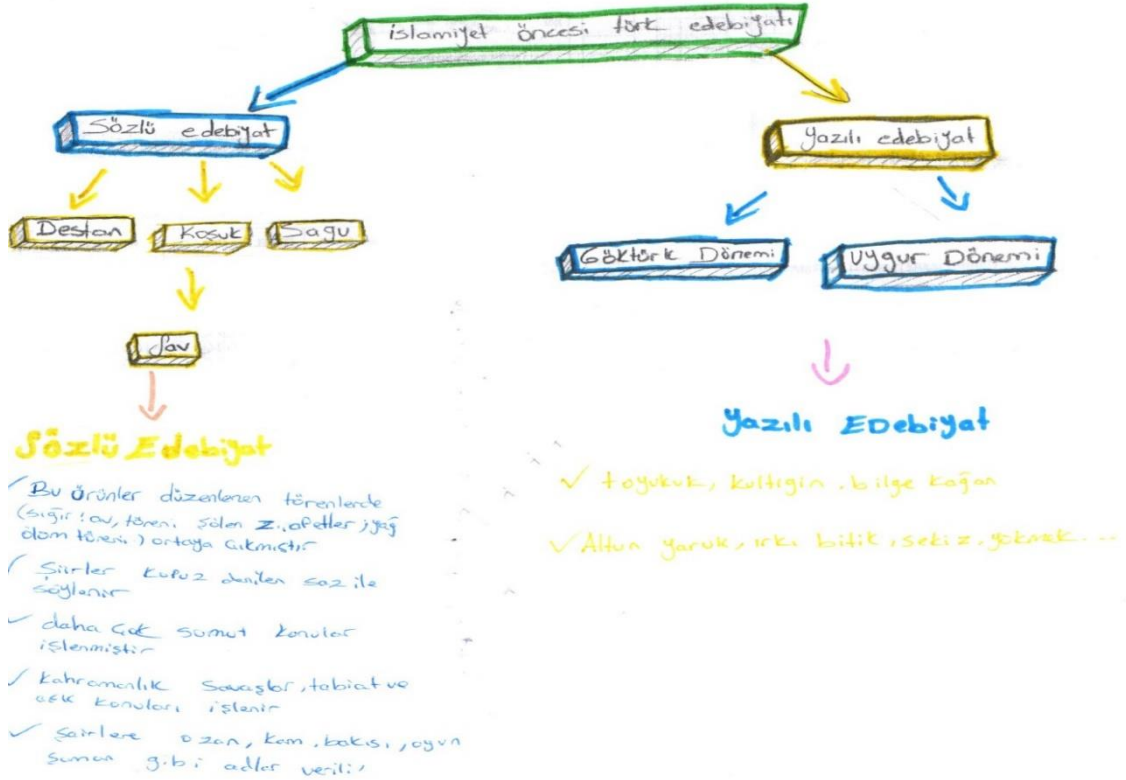 islamiyet öncesi türk edebiyatı
Sözlü edebiyat
Yazılı edebiyat
Destan
Koşuk
Sagu
Göktürk Dönemi
Uygur Dönemi
Sav
Sözlü Edebiyat
Bu ürünler düzenlenen törenlerde
(sığır: av, töreni şölen z.. afetler, yağ
ölüm töreni) ortaya çıkmıştır
Şiirler kupuz denilen saz ile
söylenir
daha çok somut konular
işlenmiştir
kahramanlık savaşlar, tabiat ve
aşk konuları işlenir
şairlere ozan, kam, bakısı, oyun
şaman gibi adlar verilir
Yazılı EDebiyat
toyukuk, kultigin, bilge kağan
Altun yaruk, ırkı bitik, sekiz, yükmek...